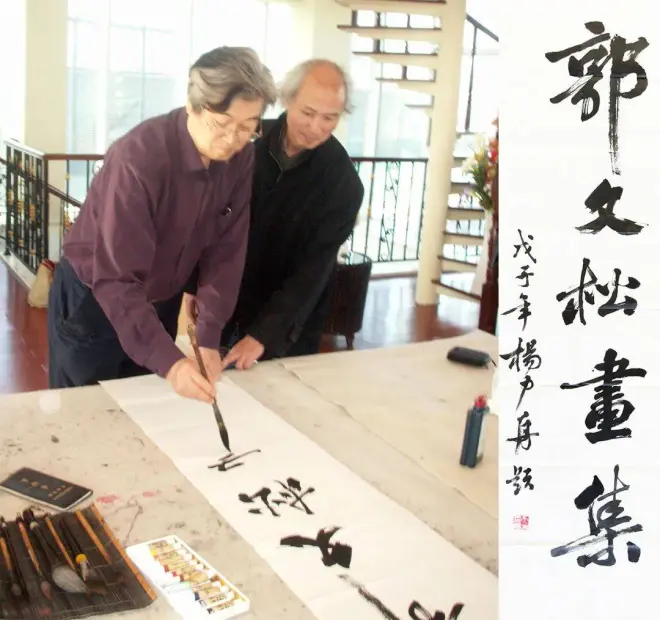 郭文松畫集
戊子年楊力舟題